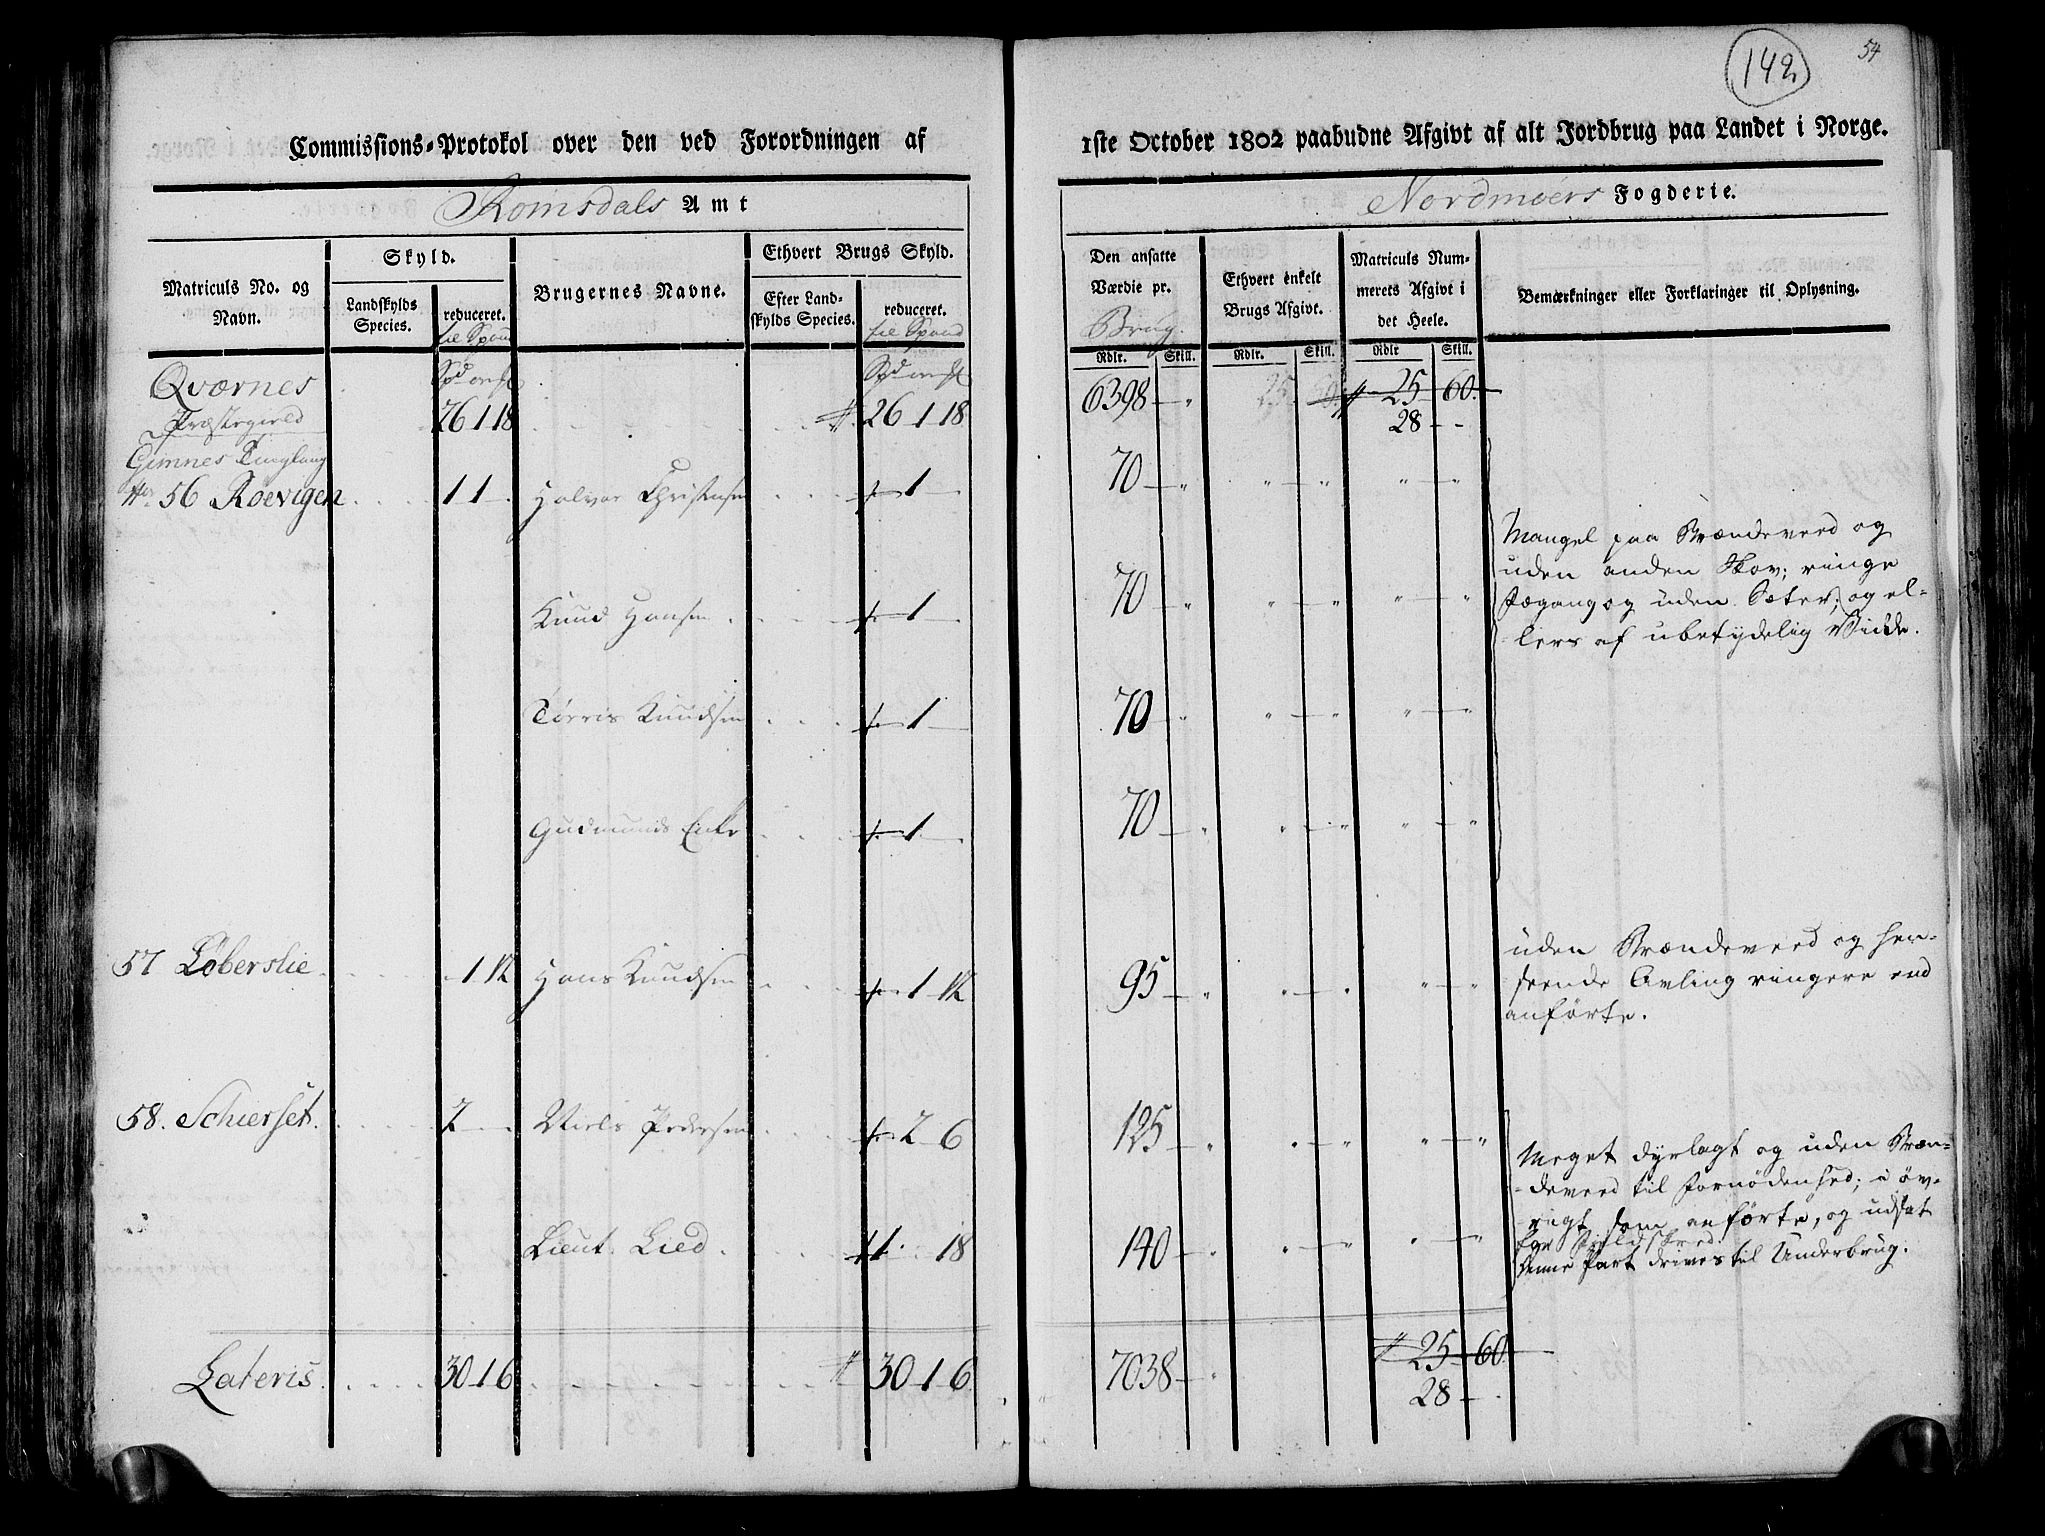 142.
54
Commissions-Protokol over den ved Forordningen af 1ste October 1802 paabudne Afgivt af alt Jordbrug paa Landet i Norge.
Romsdals Amt
Nordmøers Fogderie.
Matriculs No. og Navn.
Skyld.
Landskylds Species.
reduceret.
til Spand
Brugernes Navne.
Ethvert Brugs Skyld.
Efter Landskylds Species.
reduceret.
til Spand
Den ansatte Værdie pr. Brug.
Ethvert enkelt Brugs Afgivt.
Matriculs Nummerets Afgivt i det Heele.
Bemærkninger eller Forklaringer til Oplysning.
Rdlr. Skill. Rdlr. Skill. Rdlr Skill.
Qværnes
Præstegield 26 1 18 26 1 18 6398 25 60.
28
Gimnes Tinglaug
No. 56 Roevigen 1 1 Halvor Christensen 1 70
Knud Hansen 1 70
Mangel paa Brændeved og
uden anden Skov; ringe
Fægang og uden Sæter; og el-
lers af ubetydelig Vidde.
Tørris Knudsen 1 70
Gudmunds Enke 1 70
57 Løberslie 1 12 Hans Knudsen 1 12 95
uden Brændeved og hen-
seende Avling ringere end
anførte.
58. Schierset 2 Niels Pedersen 2 6 125
Lieut. Lied 1 18 140
Meget dyrlagt og uden Bræn-
deved til Fornødenhed; i øv-
rigt som anførte, og udsat
for Fieldskred.
Denne Part drives til Underbrug.
Lateris 30 1 6 30 1 6 7038 25 60
28